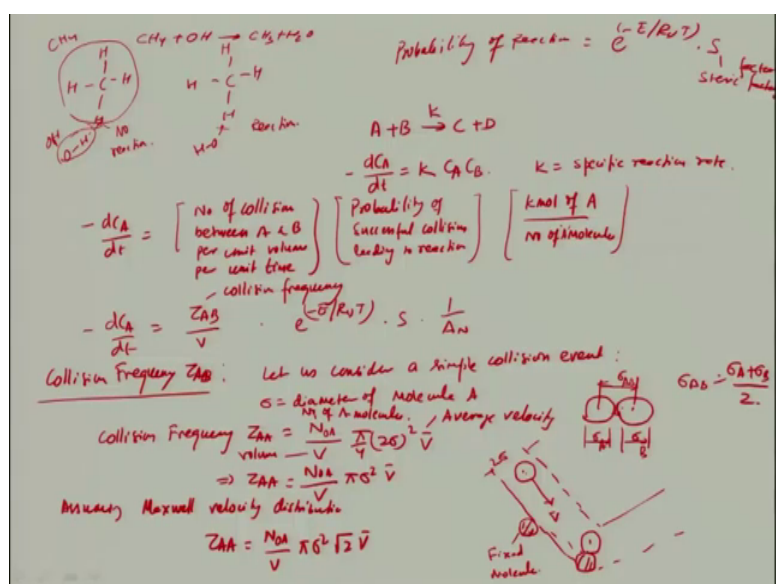 CH4
CH4 + OH → CH3 + H2O
Probability of reaction = e^(-E/RuT) · S
Steric factor
H
H - C - H
H
OH
O-H
No
reaction.
H
H - C - H
H
H-O
Reaction.
A + B →K C + D
- dCA/dt = K CA CB. K = specific reaction rate.
- dCA/dt = [No of collision between A & B per unit volume per unit time] [Probability of successful collision leading to reaction] [kmol of A / N of A molecule]
collision frequency
- dCA/dt = ZAB/V · e^(-E/RuT) · S · 1/AN
Collision Frequency ZAB : Let us consider a simple collision event :
σ = diameter of Molecule A
N of A molecule.
Average velocity
Collision Frequency ZAA = NOA/V π/4 (2σ)² V̄
volume
⇒ ZAA = NOA/V πσ² V̄
Assuming Maxwell velocity distribution
ZAA = NOA/V πσ² √2 V̄
σAB
σAB = (σA + σB)/2
σA
σB
2σ
V
Fixed
Molecule.